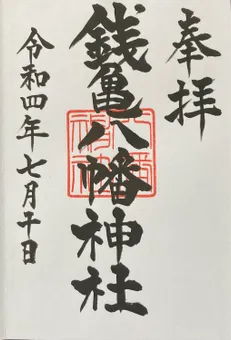 奉拝
銭亀八幡神社
令和四年七月
日